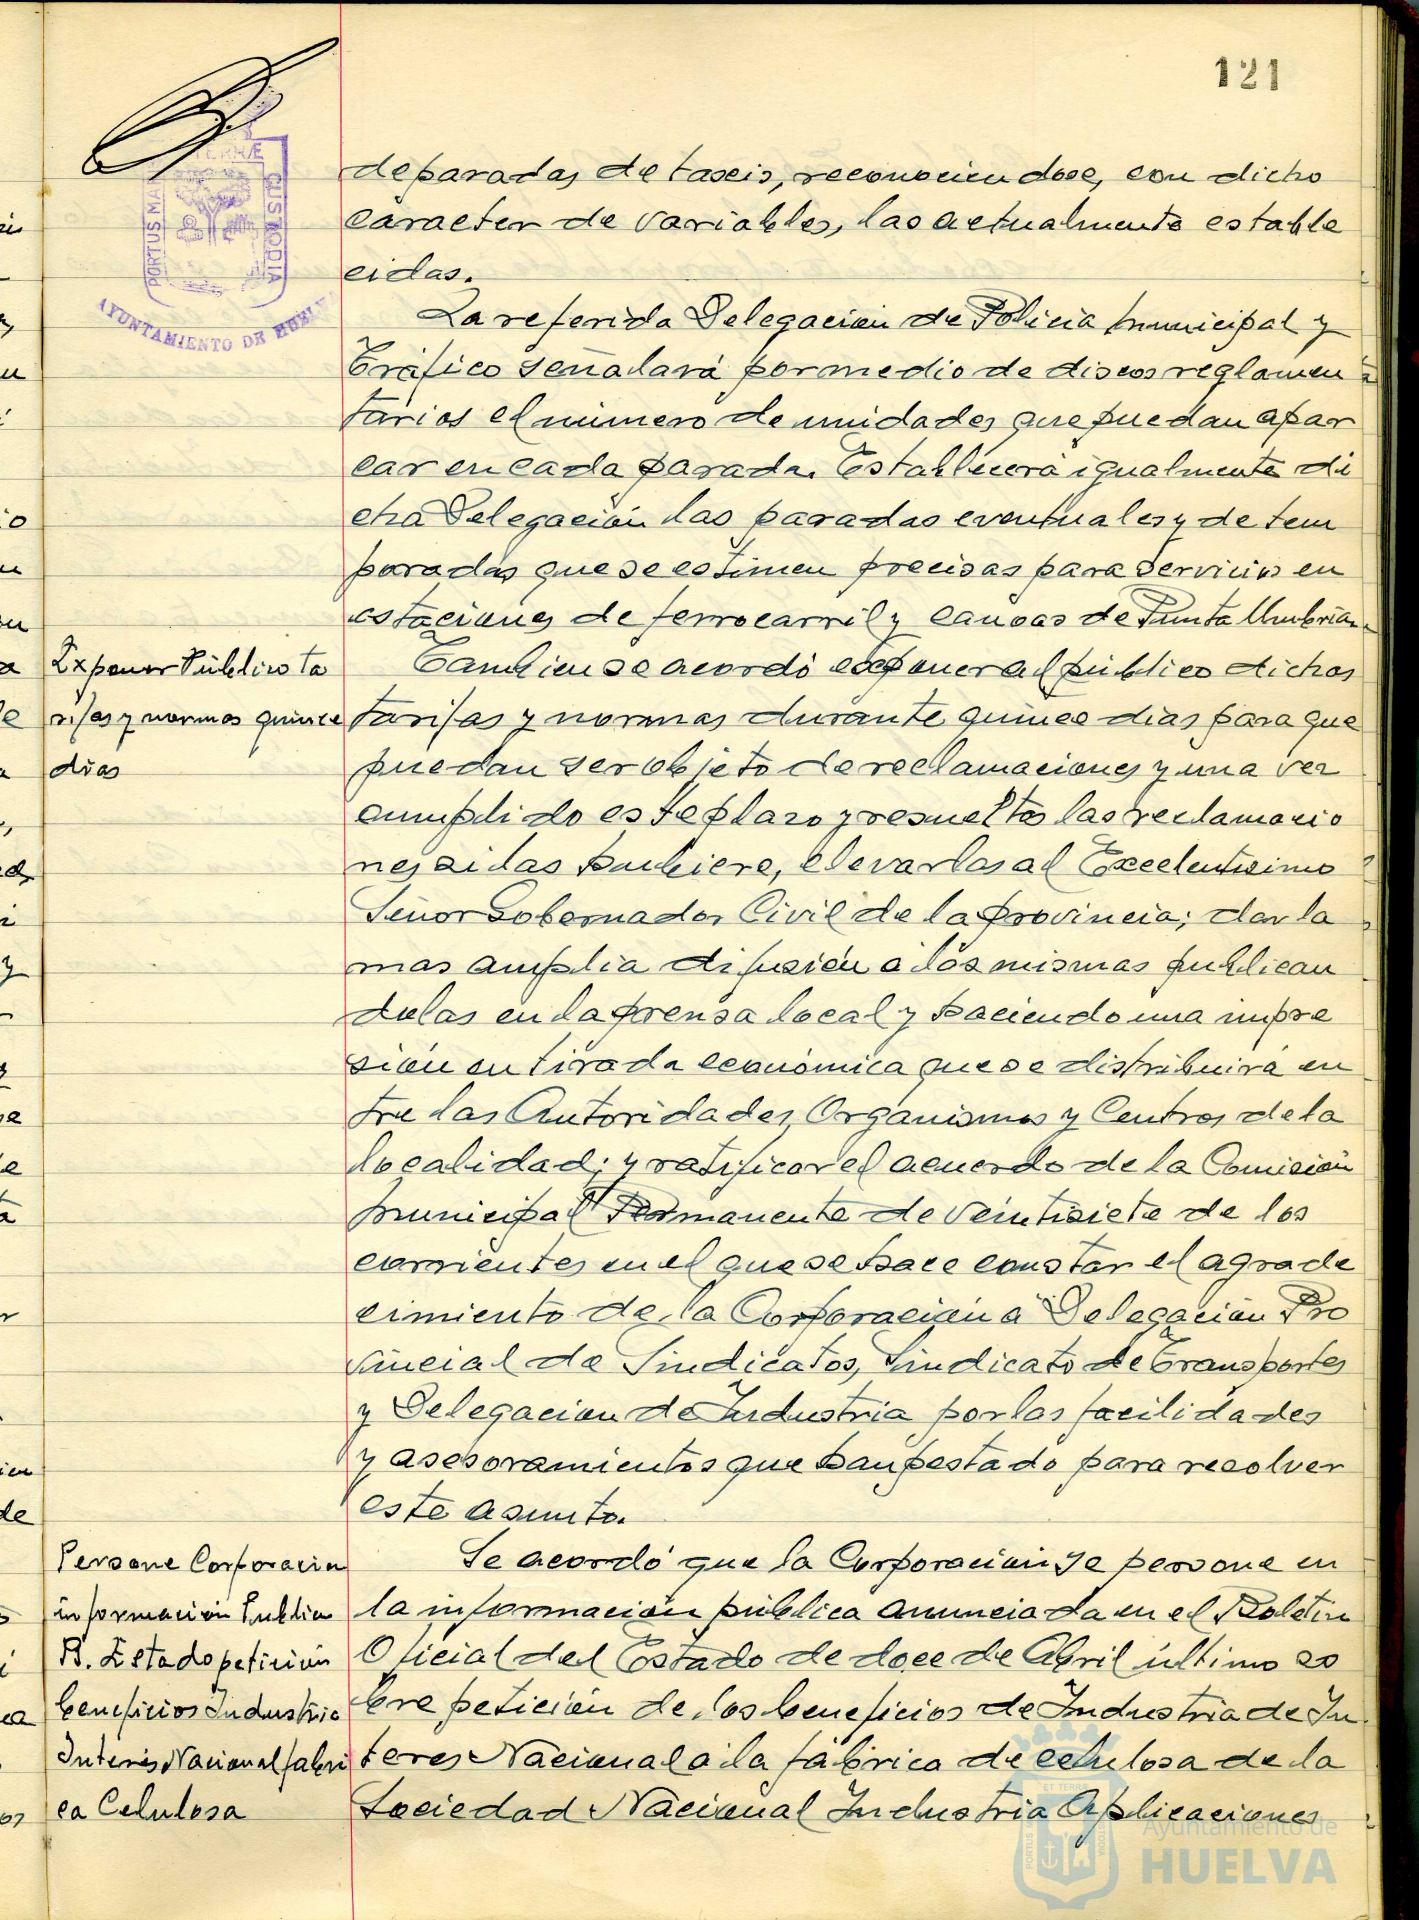 121
TERRÆ
PORTUS MAR
CUSTODIA
AYUNTAMIENTO DE HUELVA
de paradas de taxis, reconociendose, con dicho
caracter de variables, las actualmente estable
cidas.
La referida Delegación de Policia Municipal y
Tráfico señalará por medio de discos reglamen
tarios el número de unidades que puedan apar
car en cada parada. Establecerá igualmente di
cha Delegación las paradas eventuales y de tem
poradas que se estimen precisas para servicios en
estaciones de ferrocarril y canoas de Punta Umbria.
Exponer Público ta
rifas y normas quince
dias
Tambien se acordó exponer al público dichas
tarifas y normas durante quince dias para que
puedan ser objeto de reclamaciones y una vez
cumplido este plazo y resueltas las reclamacio
nes si las hubiere, elevarlas al Excelentisimo
Señor Gobernador Civil de la provincia; dar la
mas amplia difusión a las mismas publican
dolas en la prensa local y haciendo una impre
sión en tirada económica que se distribuirá en
tre las Autoridades, Organismos y Centros de la
localidad; y ratificar el acuerdo de la Comisión
Municipal Permanente de veintisiete de los
corrientes en el que se hace constar el agrade
cimiento de la Corporación a Delegación Pro
vincial de Sindicatos, Sindicato de Transportes
y Delegacion de Industria por las facilidades
y asesoramientos que han pestado para resolver
este asunto.
Persone Corporacion
información Publica
B. Estado petición
beneficios Industria
Interés Nacional fabri
ca Celulosa
Se acordó que la Corporación se persone en
la información pública anunciada en el Boletin
Oficial del Estado de doce de Abril último so
bre petición de los beneficios de Industria de In
teres Nacional a la fábrica de celulosa de la
Sociedad Nacional Industria Aplicaciones
Ayuntamiento de
HUELVA